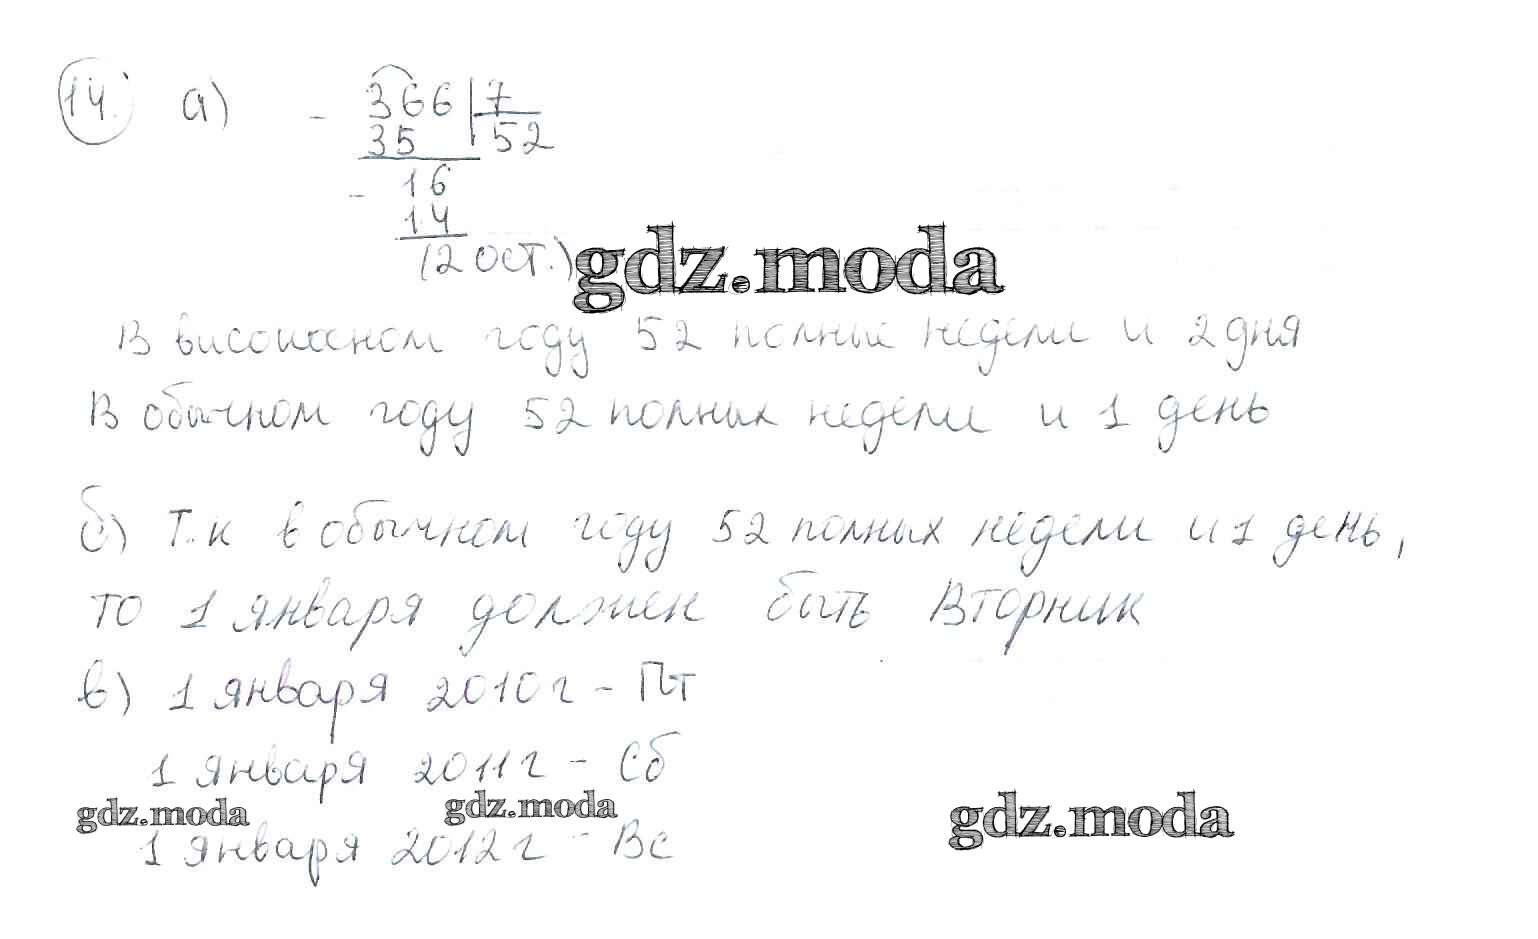 14. а) - 366 | 7
35 52
- 16
14
(2 ост.)
gdz.moda
В високосном году 52 полные недели и 2 дня
В обычном году 52 полных недели и 1 день
б) Т.к в обычном году 52 полных недели и 1 день,
то 1 января должен быть Вторник
в) 1 января 2010 г - Пт
1 января 2011 г - Сб
gdz.moda gdz.moda gdz.moda
1 января 2012 г - Вс